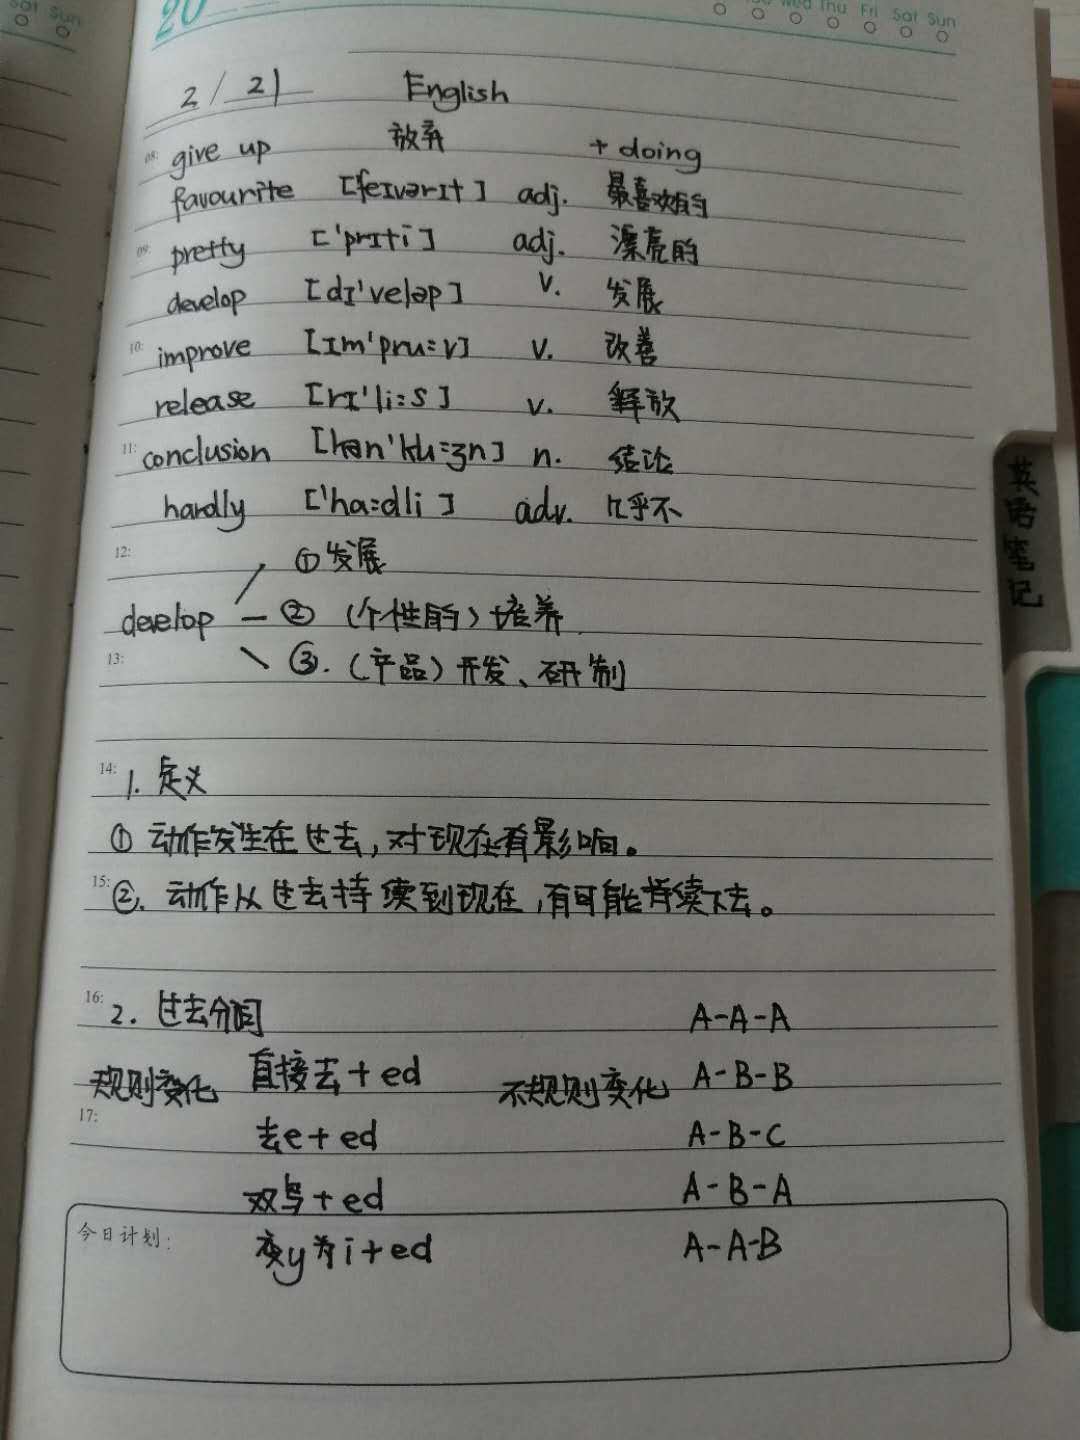 Sat Sun
20
Wed Thu Fri Sat Sun
2/21 English
08: give up 放弃 + doing
favourite [feɪvərɪt] adj. 最喜欢的
09: pretty ['prɪti] adj. 漂亮的
develop [dɪ'veləp] v. 发展
10: improve [ɪm'pru:v] v. 改善
release [rɪ'li:s] v. 释放
11: conclusion [kən'klu:ʒn] n. 结论
hardly ['ha:dli] adv. 几乎不
12: ①发展
develop ②(个性的)培养
13: ③.(产品)开发、研制
14: 1. 定义
①动作发生在过去,对现在有影响。
15: ②. 动作从过去持续到现在,有可能持续下去。
16: 2. 过去分词 A-A-A
规则变化 直接去+ed 不规则变化 A-B-B
17: 去e+ed A-B-C
双写+ed A-B-A
今日计划: 变y为i+ed A-A-B
英语笔记